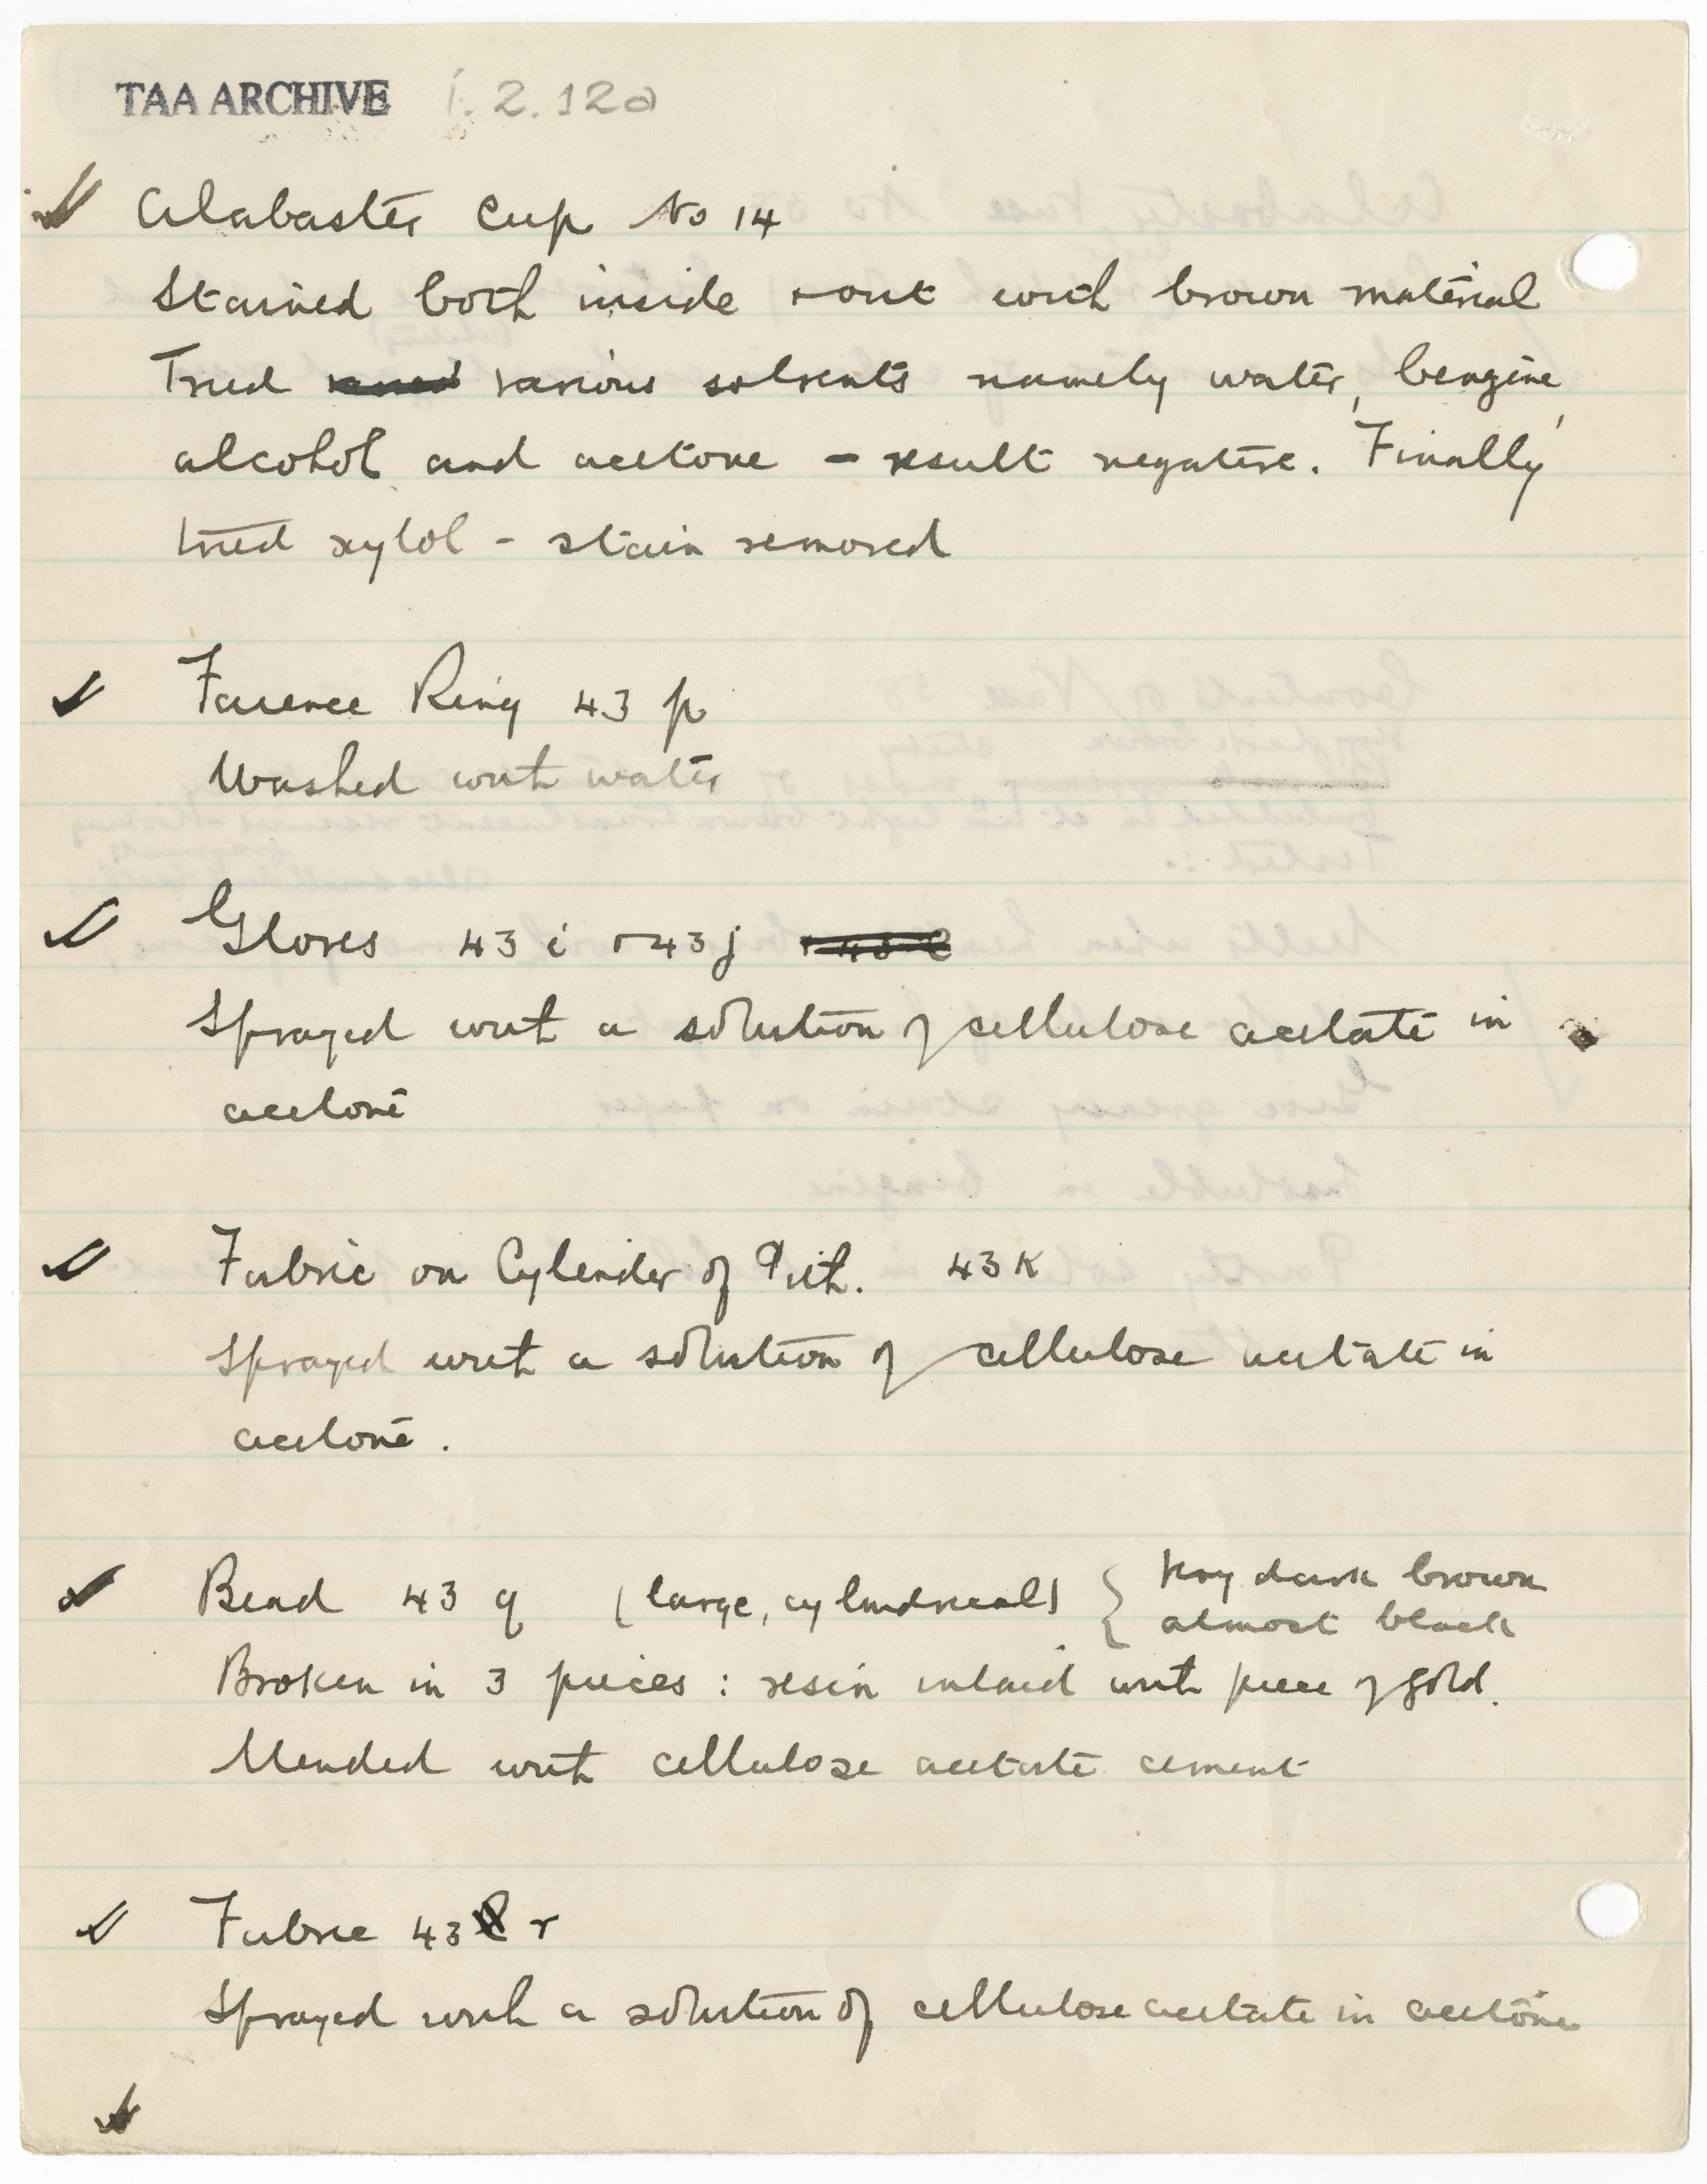 TAA ARCHIVE 1.2.12a
Alabaster Cup No 14
Stained both inside + out with brown material
Tried various solvents namely water, benzine,
alcohol and acetone – result negative. Finally
tried xylol – stain removed
Faience Ring 43 p
Washed with water
Gloves 43 i + 43 j
Sprayed with a solution of cellulose acetate in
acetone
Fabric on Cylinder of Pith. 43 K
Sprayed with a solution of cellulose acetate in
acetone.
Bead 43 q (large, cylindrical) { Very dark brown
almost black
Broken in 3 pieces : resin inlaid with piece of gold.
Mended with cellulose acetate cement
Fabric 43 r
Sprayed with a solution of cellulose acetate in acetone